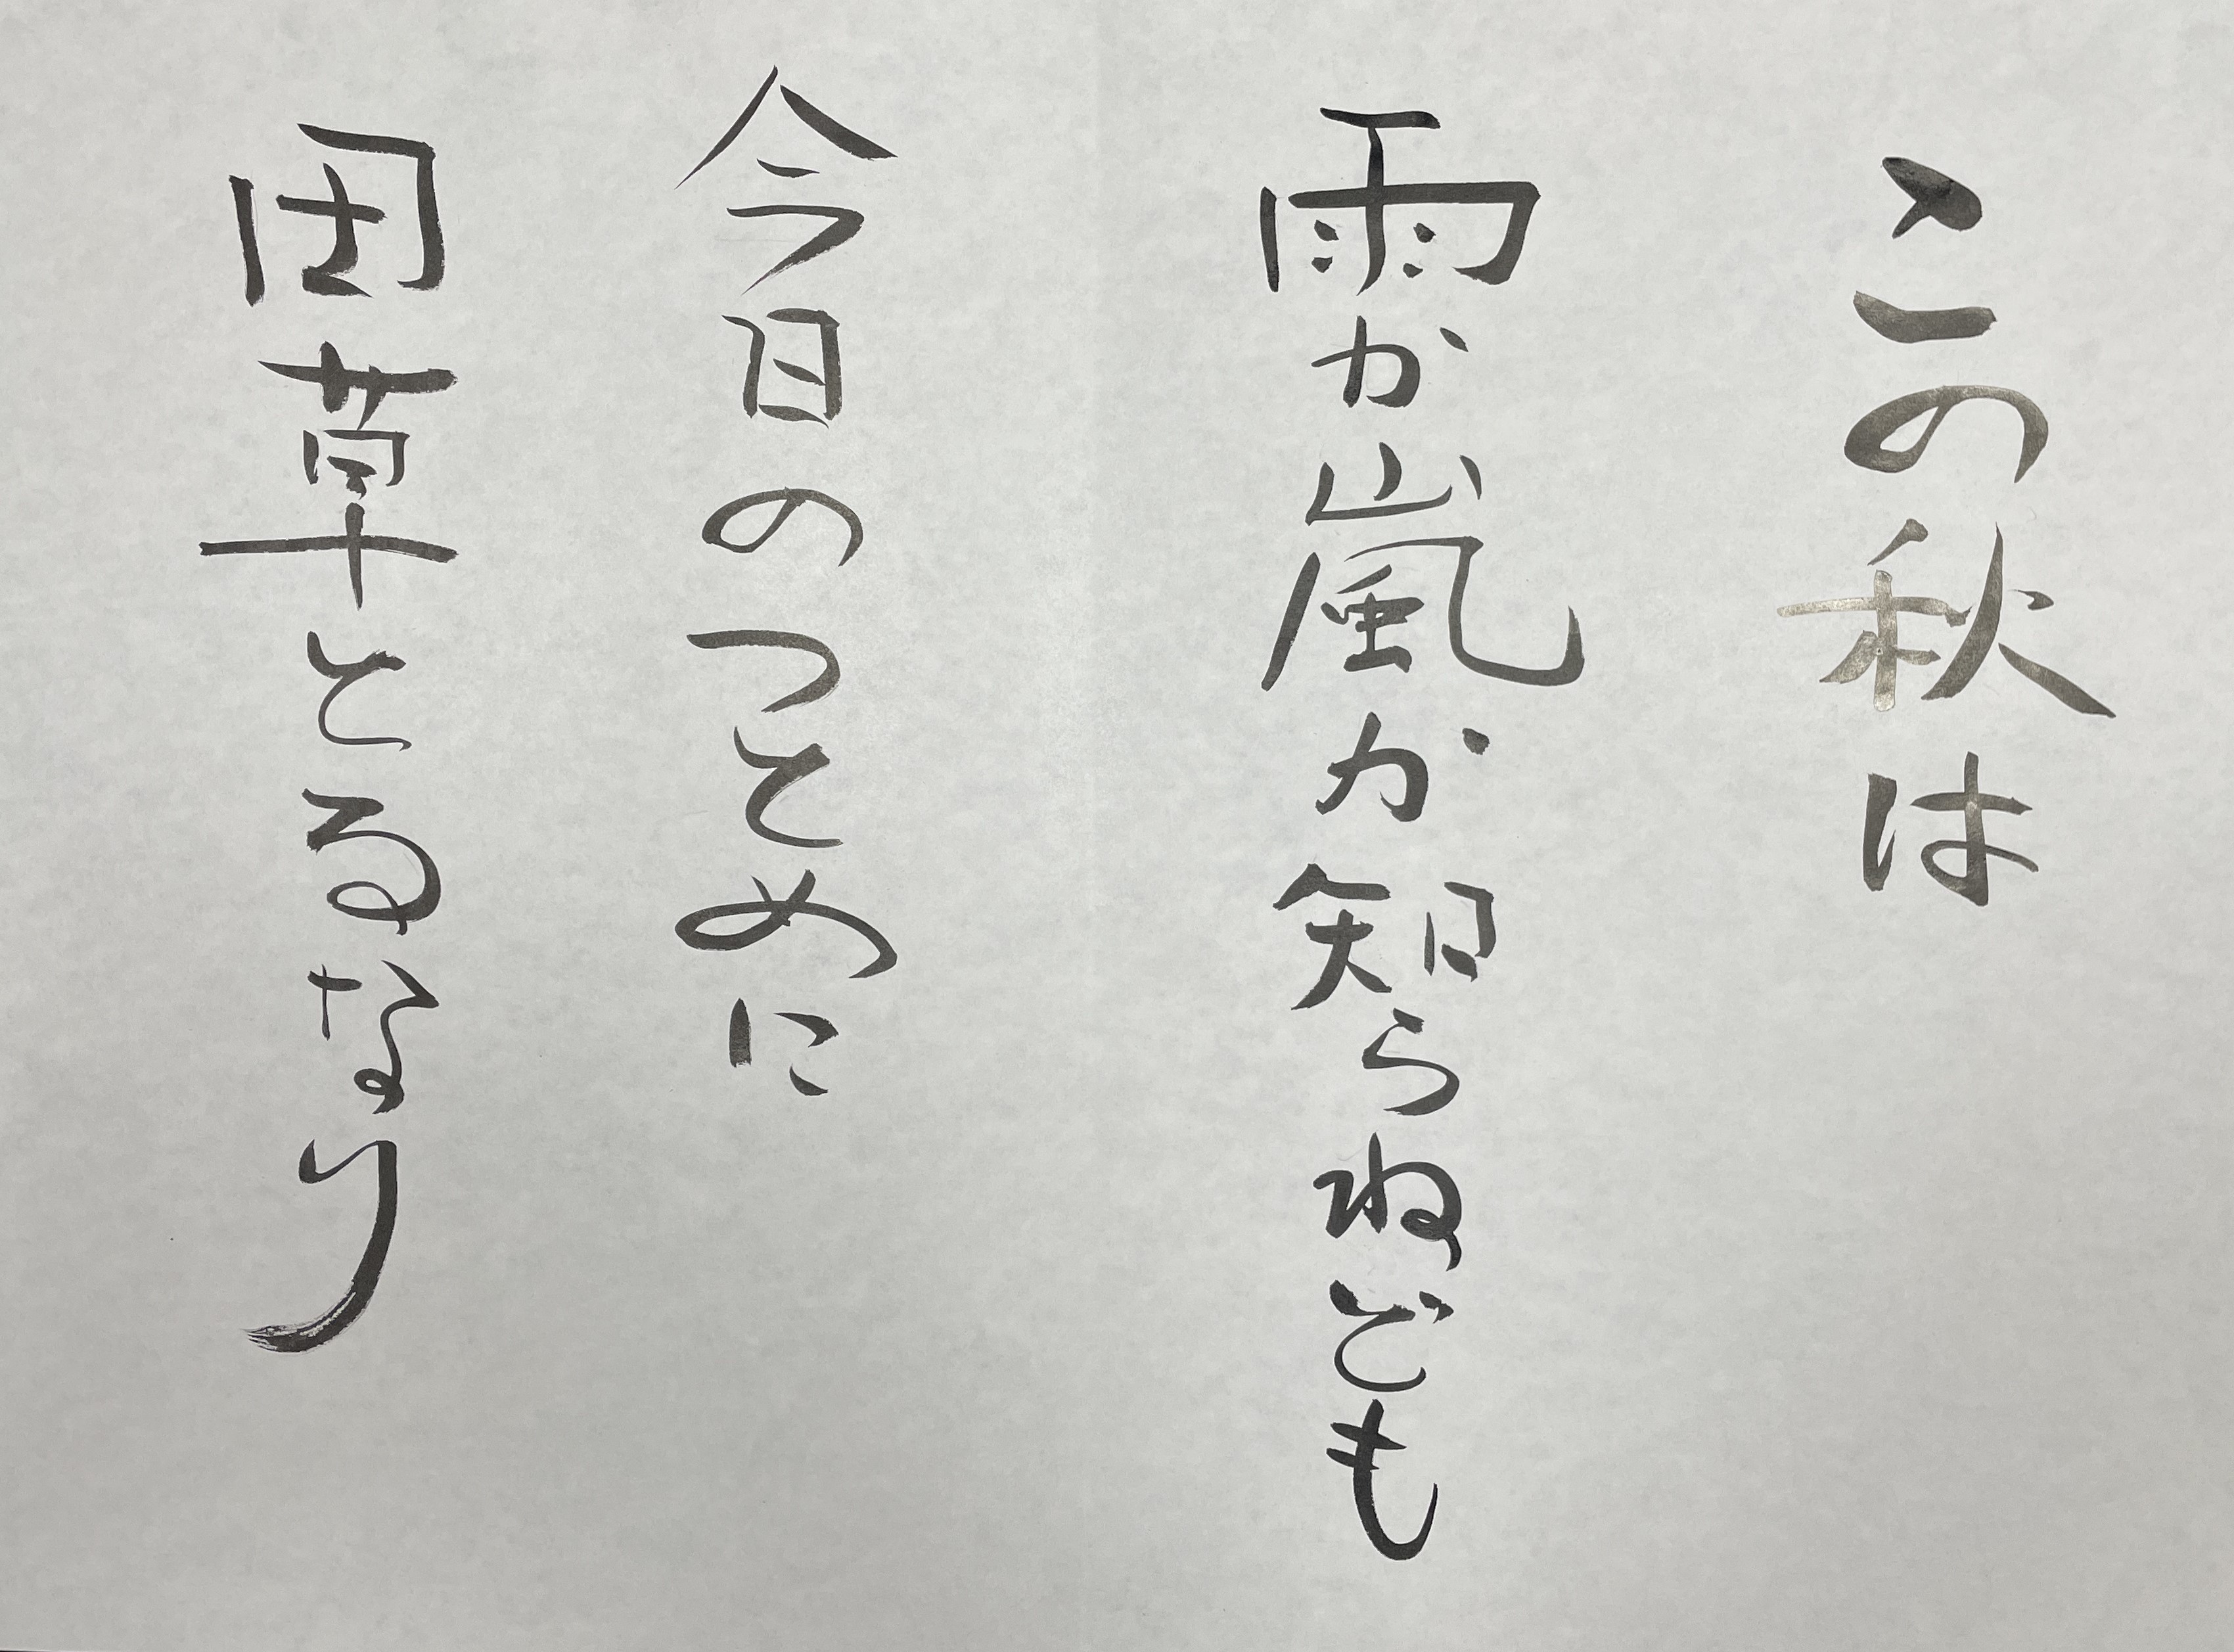 この秋は
雨か嵐か知らねども
今日のつとめに
田草とるなり